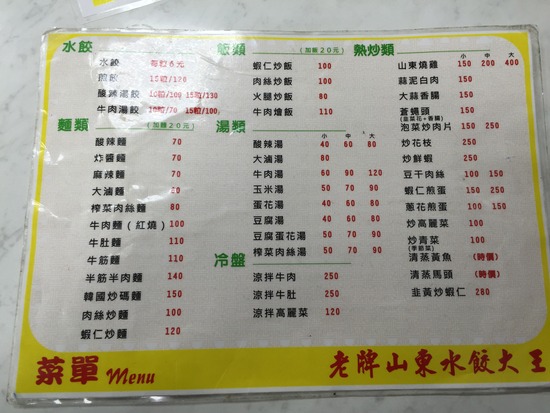 水餃
水餃 每粒6元
煎餃 15粒/120
酸辣湯餃 10粒/100 15粒/130
牛肉湯餃 10粒/70 15粒/100
麵類 (加麵20元)
酸辣麵 70
炸醬麵 70
麻辣麵 70
大滷麵 80
榨菜肉絲麵 80
牛肉麵(紅燒) 100
牛肚麵 110
牛筋麵 110
半筋半肉麵 140
韓國炒碼麵 150
肉絲炒麵 100
蝦仁炒麵 120
飯類 (加飯20元)
蝦仁炒飯 100
肉絲炒飯 80
火腿炒飯 80
牛肉燴飯 100
湯類 小 中 大
酸辣湯 40 60 80
大滷湯 80
牛肉湯 60 90 120
玉米湯 50 70 90
蛋花湯 40 60 80
豆腐湯 40 60 80
豆腐蛋花湯 50 70 90
榨菜肉絲湯 50 70 90
冷盤
涼拌牛肉 250
涼拌牛肚 250
涼拌高麗菜 120
熱炒類 小 中 大
山東燒雞 150 200 400
蒜泥白肉 150
大蒜香腸 150
蒼蠅頭 150
(韭菜花+香腸)
泡菜炒肉片 150 250
炒花枝 150
炒鮮蝦 250
豆干肉絲 100 150
蝦仁煎蛋 150 250
蔥花煎蛋 100 150
炒高麗菜 100
炒青菜 100
(季節菜)
清蒸黃魚 (時價)
清蒸馬頭 (時價)
韭黃炒蝦仁 280
菜單 Menu
老牌山東水餃大王